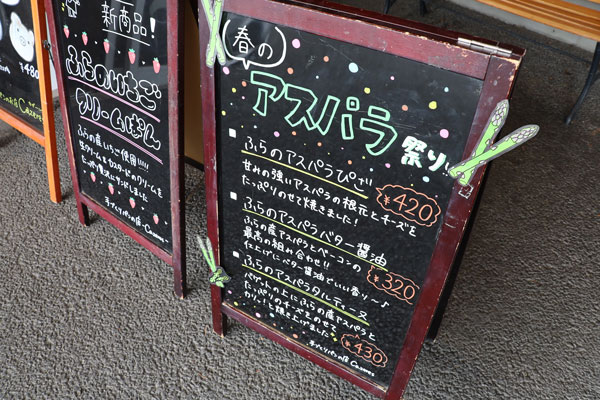 ¥480
新商品!
ふらのいちご
クリームぱん
ふらの産いちご使用!!!!
生クリームとカスタードのクリームを
たっぷり贅沢にサンドしました
手づくりパンの店 Cazeres
春の
アスパラ
祭り!
ふらのアスパラぴざ
甘みの強いアスパラの根元とチーズを
たっぷりのせて焼きました!
¥420
ふらのアスパラバター醤油
ふらの産アスパラとベーコンの
最高の組み合わせ!!
仕上げにバター醤油でいい香り〜♪
¥320
ふらのアスパラタルティーヌ
バゲットの上にふらの産アスパラと
たっぷりのチーズをのせて
カリッ!と焼き上げました
¥430
手づくりパンの店 Cazeres